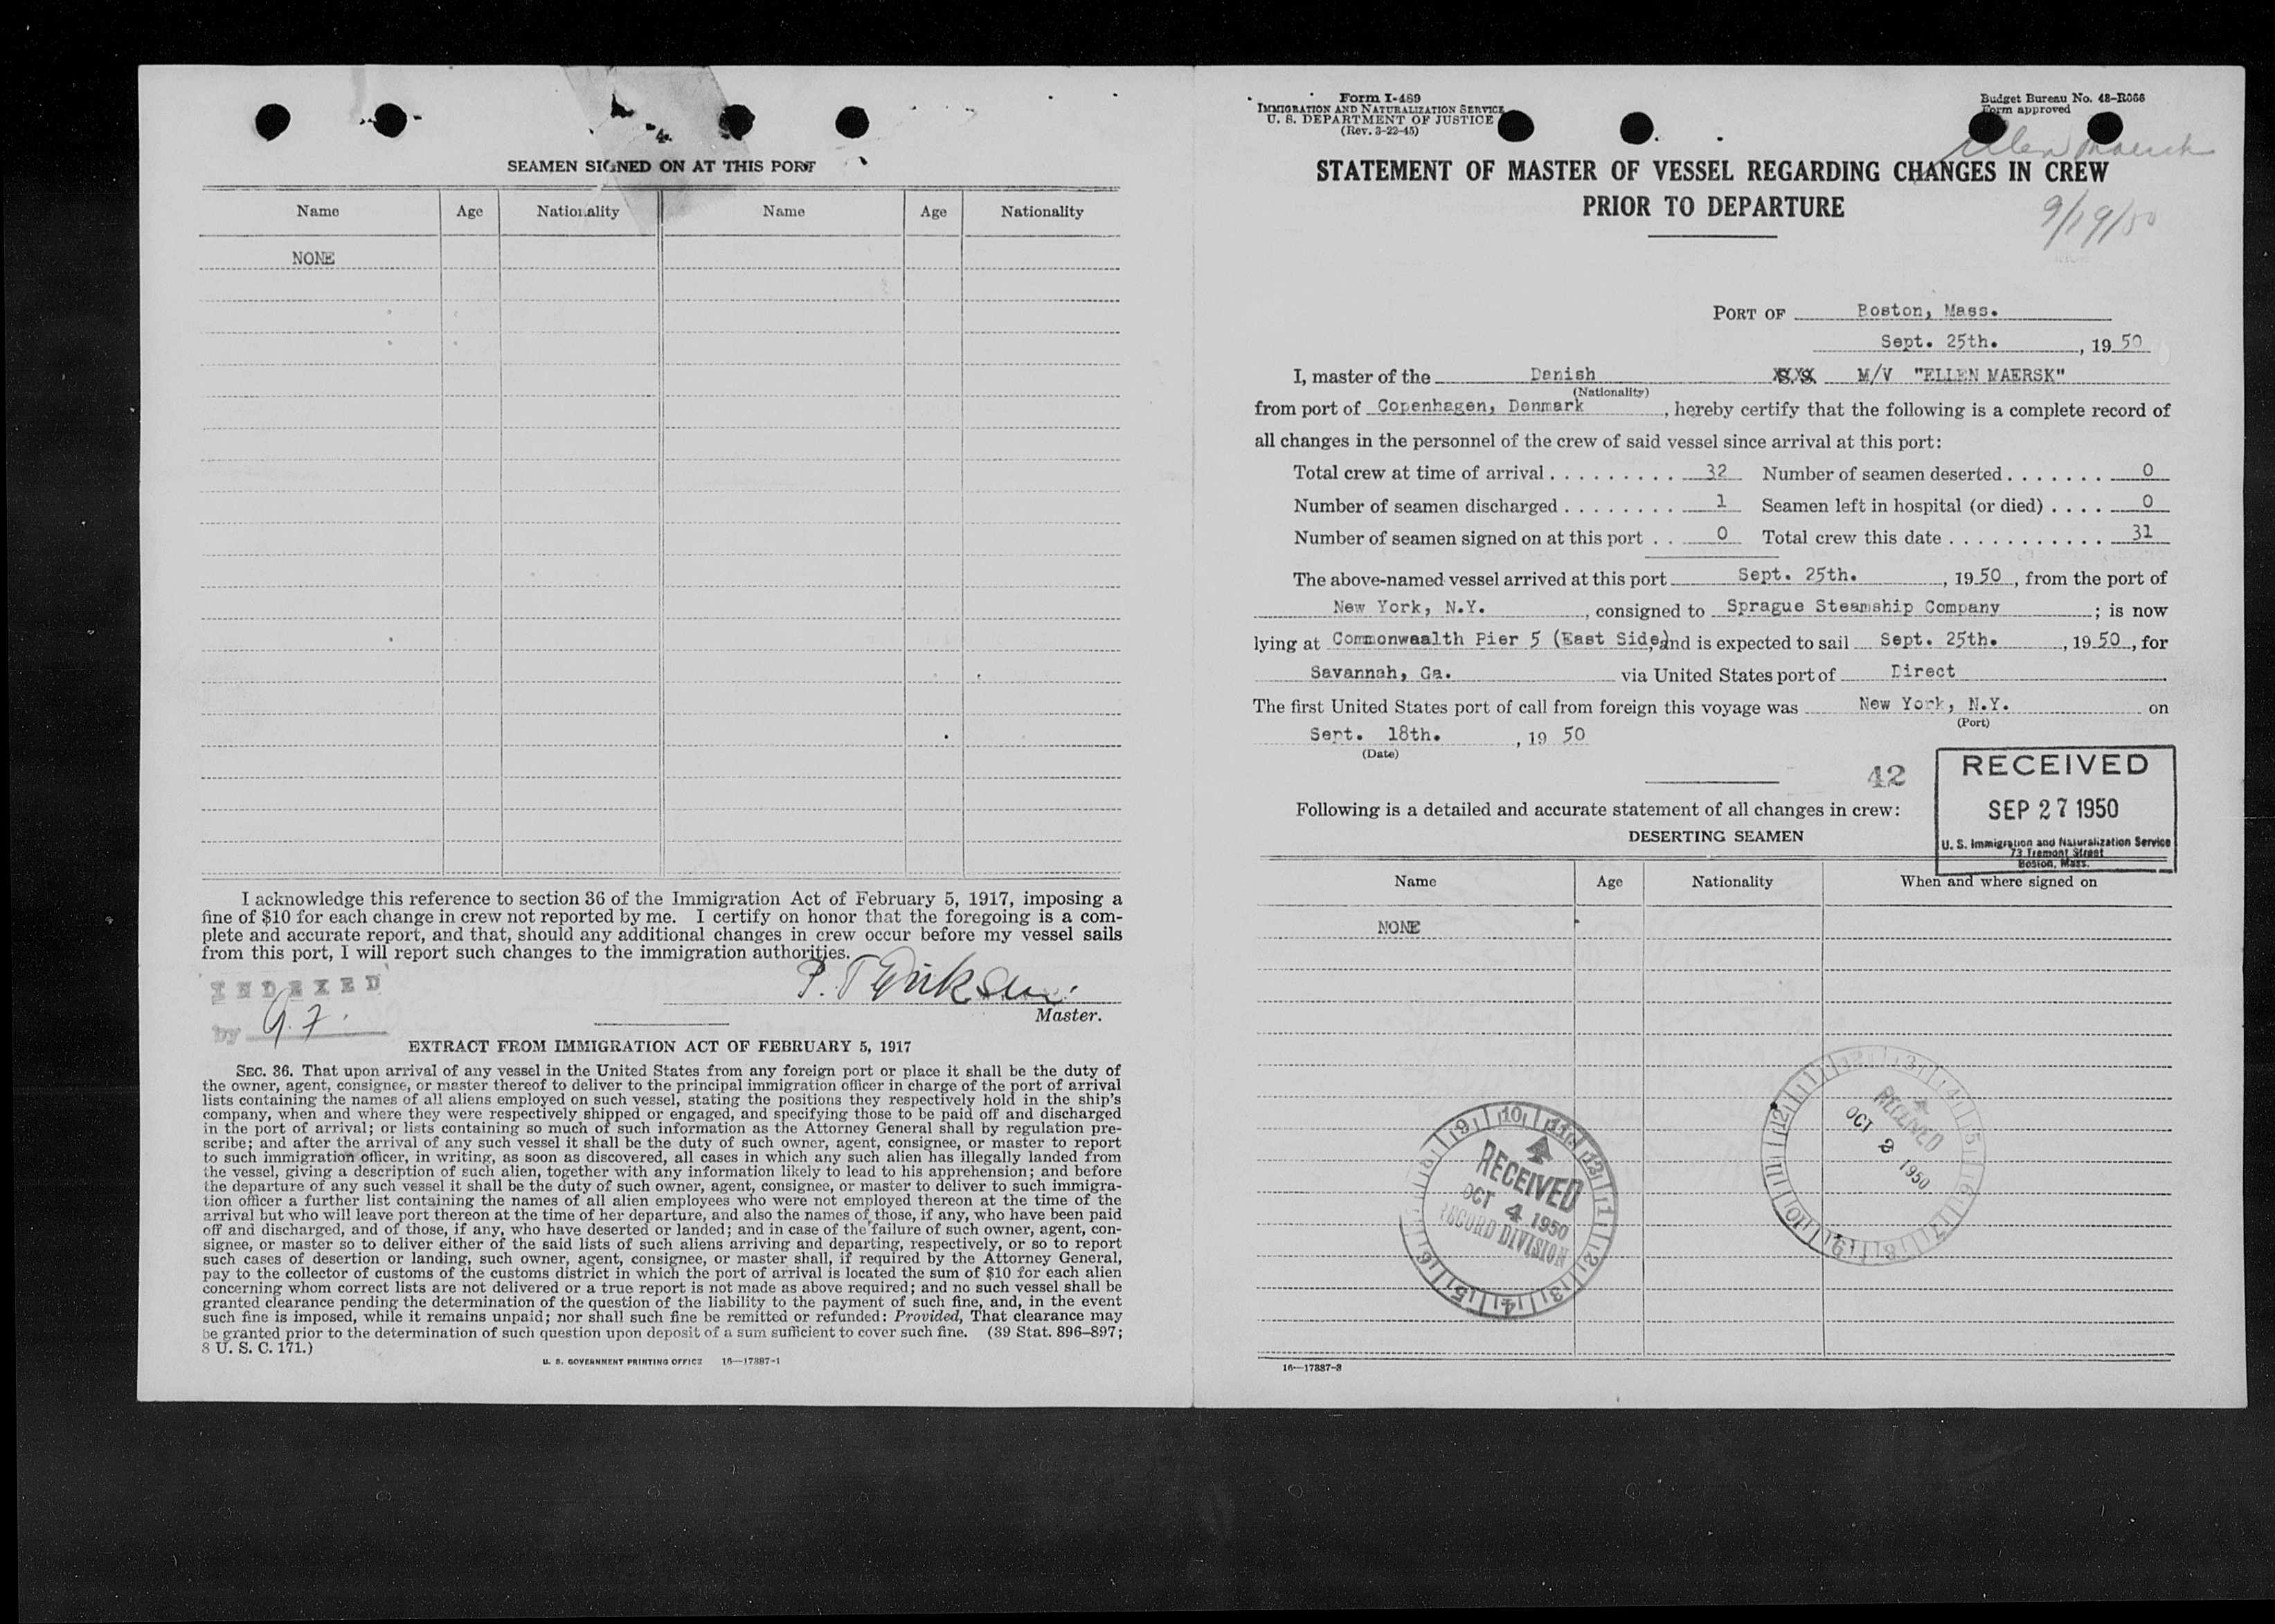 4
SEAMEN SIGNED ON AT THIS PORT
Name Age Nationality Name Age Nationality
NONE
I acknowledge this reference to section 36 of the Immigration Act of February 5, 1917, imposing a
fine of $10 for each change in crew not reported by me. I certify on honor that the foregoing is a com-
plete and accurate report, and that, should any additional changes in crew occur before my vessel sails
from this port, I will report such changes to the immigration authorities.
INDEXED
by
Master.
EXTRACT FROM IMMIGRATION ACT OF FEBRUARY 5, 1917
SEC. 36. That upon arrival of any vessel in the United States from any foreign port or place it shall be the duty of
the owner, agent, consignee, or master thereof to deliver to the principal immigration officer in charge of the port of arrival
lists containing the names of all aliens employed on such vessel, stating the positions they respectively hold in the ship's
company, when and where they were respectively shipped or engaged, and specifying those to be paid off and discharged
in the port of arrival; or lists containing so much of such information as the Attorney General shall by regulation pre-
scribe; and after the arrival of any such vessel it shall be the duty of such owner, agent, consignee, or master to report
to such immigration officer, in writing, as soon as discovered, all cases in which any such alien has illegally landed from
the vessel, giving a description of such alien, together with any information likely to lead to his apprehension; and before
the departure of any such vessel it shall be the duty of such owner, agent, consignee, or master to deliver to such immigra-
tion officer a further list containing the names of all alien employees who were not employed thereon at the time of the
arrival but who will leave port thereon at the time of her departure, and also the names of those, if any, who have been paid
off and discharged, and of those, if any, who have deserted or landed; and in case of the failure of such owner, agent, con-
signee, or master so to deliver either of the said lists of such aliens arriving and departing, respectively, or so to report
such cases of desertion or landing, such owner, agent, consignee, or master shall, if required by the Attorney General,
pay to the collector of customs of the customs district in which the port of arrival is located the sum of $10 for each alien
concerning whom correct lists are not delivered or a true report is not made as above required; and no such vessel shall be
granted clearance pending the determination of the question of the liability to the payment of such fine, and, in the event
such fine is imposed, while it remains unpaid; nor shall such fine be remitted or refunded: Provided, That clearance may
be granted prior to the determination of such question upon deposit of a sum sufficient to cover such fine. (39 Stat. 896–897;
8 U. S. C. 171.)
U. S. GOVERNMENT PRINTING OFFICE 16—17387-1
Form I-489
IMMIGRATION AND NATURALIZATION SERVICE
U. S. DEPARTMENT OF JUSTICE
(Rev. 3-22-45)
Budget Bureau No. 43-R066
Form approved
Ellen Maersk
9/19/50
STATEMENT OF MASTER OF VESSEL REGARDING CHANGES IN CREW
PRIOR TO DEPARTURE
PORT OF Boston, Mass.
Sept. 25th. , 19 50
I, master of the Danish M/V "ELLEN MAERSK"
(Nationality)
from port of Copenhagen, Denmark , hereby certify that the following is a complete record of
all changes in the personnel of the crew of said vessel since arrival at this port:
Total crew at time of arrival . . . . . . . . . 32 Number of seamen deserted . . . . . . . 0
Number of seamen discharged . . . . . . . . 1 Seamen left in hospital (or died) . . . . 0
Number of seamen signed on at this port . . 0 Total crew this date . . . . . . . . . . . 31
The above-named vessel arrived at this port Sept. 25th. , 19 50 , from the port of
New York, N.Y. , consigned to Sprague Steamship Company ; is now
lying at Commonwaalth Pier 5 (East Side) , and is expected to sail Sept. 25th. , 19 50 , for
Savannah, Ga. via United States port of Direct .
The first United States port of call from foreign this voyage was New York, N.Y. on
(Port)
Sept. 18th. , 19 50
(Date)
42
RECEIVED
SEP 27 1950
U. S. Immigration and Naturalization Service
73 Tremont Street
Boston, Mass.
Following is a detailed and accurate statement of all changes in crew:
DESERTING SEAMEN
Name Age Nationality When and where signed on
NONE
RECEIVED
OCT 4 1950
RECORD DIVISION
9 10 11 12 1 2 3 4 5 6
RECEIVED
OCT 2 1950
16—17387-3